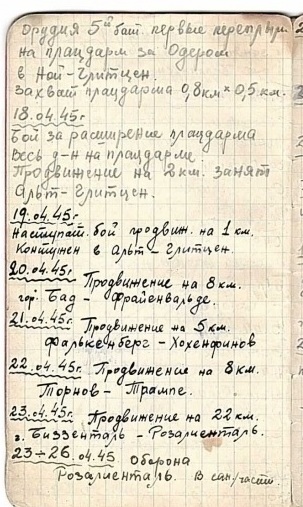 Орудия 5й бат. первые переплыли
на плацдарм за Одером
в Ной-Глитцен.
Захват плацдарма 0,8км × 0,5 км.
18.04.45г
Бой за расширение плацдарма
Весь д-н на плацдарме
Продвижение на 2км. занят
Альт-Глитцен.
19.04.45г.
Наступат. бой продвиж. на 1 км.
Контужен в Альт-Глитцен.
20.04.45г Продвижение на 8 км
гор. Бад - Фрайенвальде.
21.04.45г. Продвижение на 5 км.
Фалькенберг - Хохенфинов
22.04.45г. Продвижение на 8 км
Торнов - Трампе.
23.04.45г. Продвижение на 22 км.
г. Биззенталь - Розалиенталь.
23÷26.04.45 оборона
Розалиенталь. В сан/части.